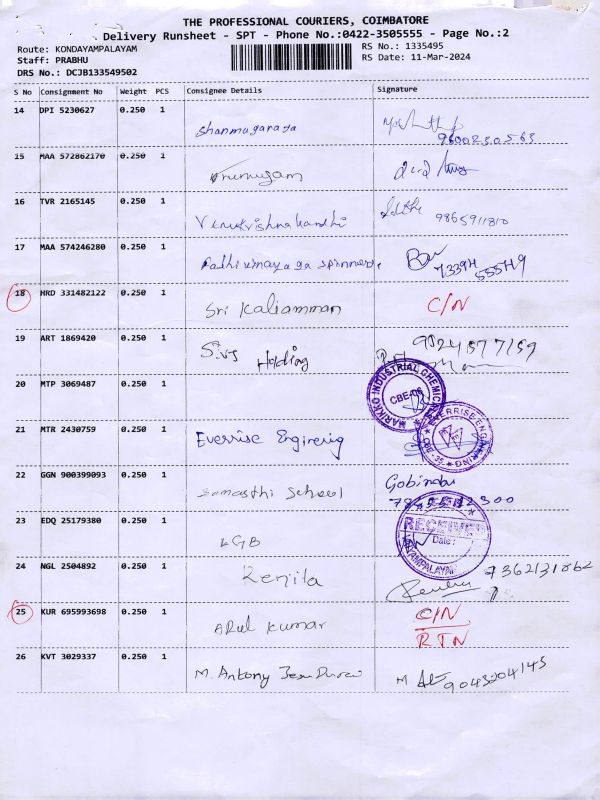 THE PROFESSIONAL COURIERS, COIMBATORE
Delivery Runsheet - SPT - Phone No.:0422-3505555 - Page No.:2
Route: KONDAYAMPALAYAM
RS No.: 1335495
Staff: PRABHU
RS Date: 11-Mar-2024
DRS No.: DCJB133549502
S No Consignment No Weight PCS Consignee Details Signature
14 DPI 5230627 0.250 1 Shanmugaraja
9600230563
15 MAA 572862170 0.250 1
16 TVR 2165145 0.250 1 Venukrishnakanthi 9865911810
17 MAA 574246280 0.250 1
18 HRD 331482122 0.250 1 Sri Kaliamman C/N
19 ART 1869420 0.250 1 S.VS Holding
20 MTP 3069487 0.250 1
MARIKKO INDUSTRIAL CHEMICALS
CBE-06
21 MTR 2430759 0.250 1 Everrise Enginering
EVERRISE
CBE-35
22 GGN 900399093 0.250 1 Samasthi School Gobinday
23 EDQ 25179380 0.250 1 LGB
RECEIVED
Date:
24 NGL 2504892 0.250 1 Renjila 7362131862
25 KUR 695993698 0.250 1 Arul Kumar C/N
RTN
26 KVT 3029337 0.250 1 M. Antony Jesu Durai 9043204145